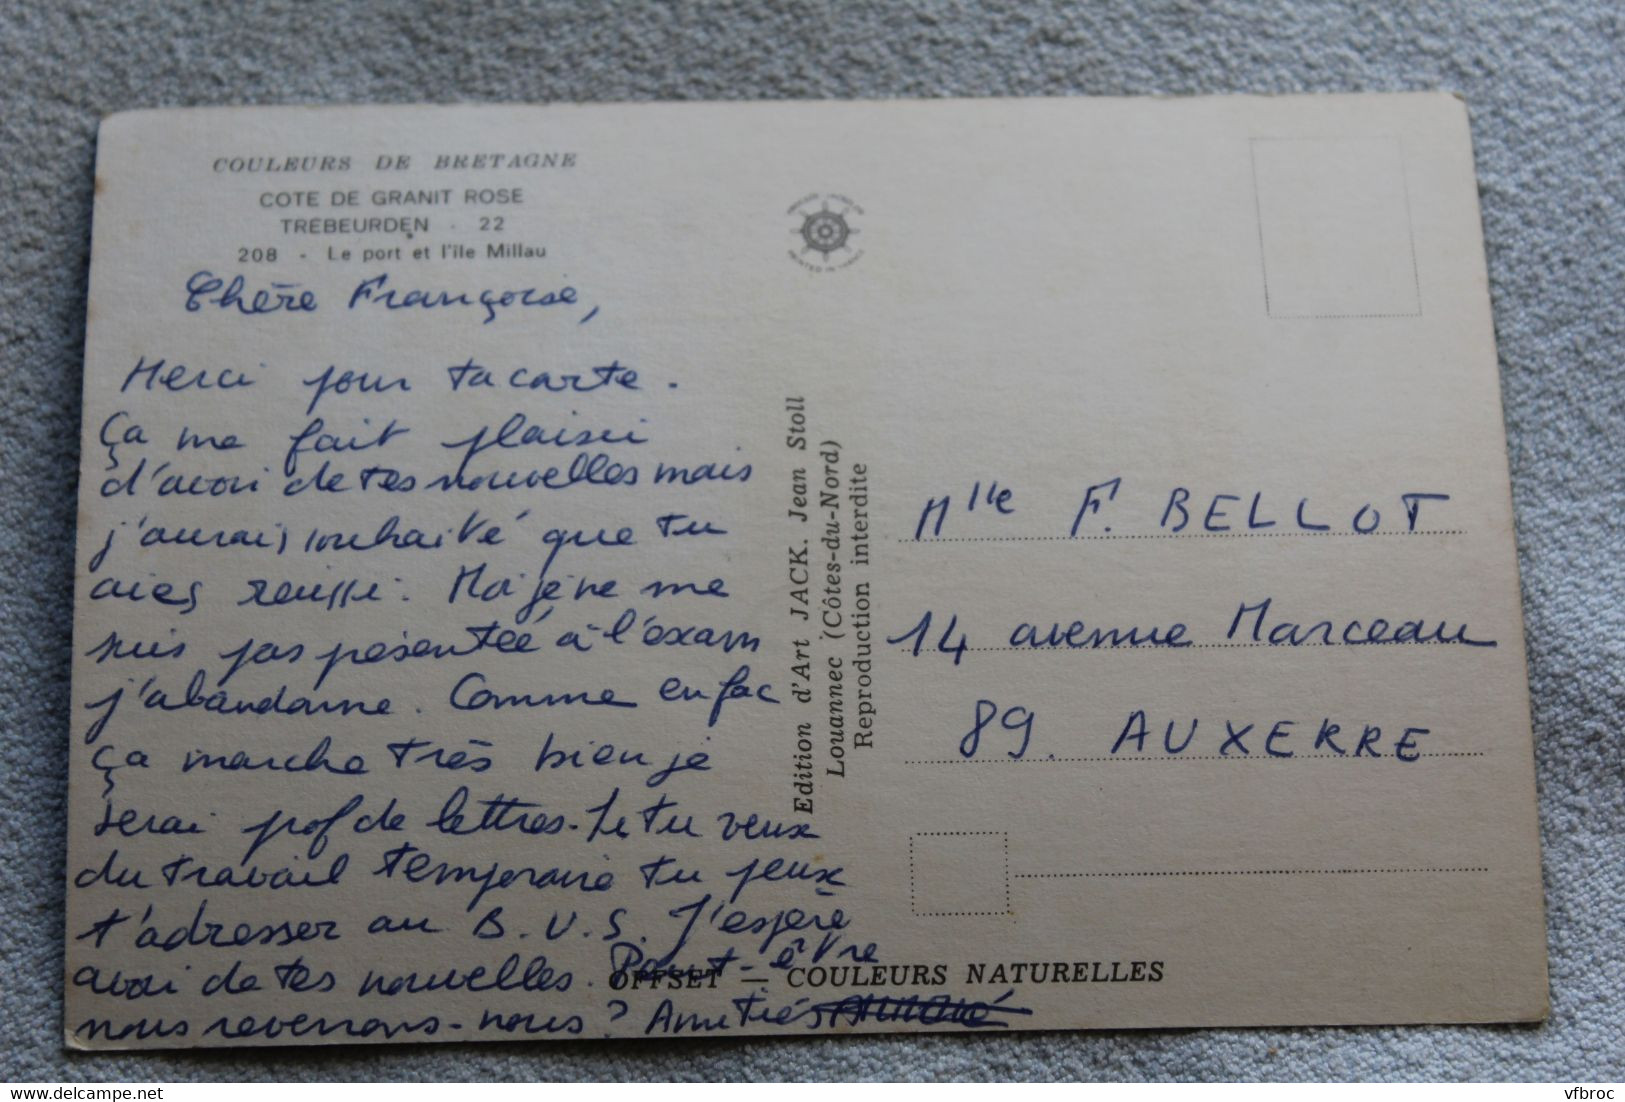 COULEURS DE BRETAGNE
COTE DE GRANIT ROSE
TREBEURDEN - 22
208 - Le port et l'île Millau
Chère Françoise,
Merci pour ta carte.
Ça me fait plaisir
d'avoir de tes nouvelles mais
j'aurais souhaité que tu
aies réussi. Moi je ne me
suis pas présentée à l'exam
j'abandonne. Comme en fac
ça marche très bien je
serai prof de lettres. Si tu veux
du travail temporaire tu peux
t'adresser au B.U.S. J'espère
avoir de tes nouvelles. Peut-être
nous reverrons-nous? Amitiés
Edition d'Art JACK. Jean Stoll
Louannec (Côtes-du-Nord)
Reproduction interdite
Mlle F. BELLOT
14 avenue Marceau
89. AUXERRE
OFFSET — COULEURS NATURELLES
PRINTED IN FRANCE
vfbroc
delcampe.net